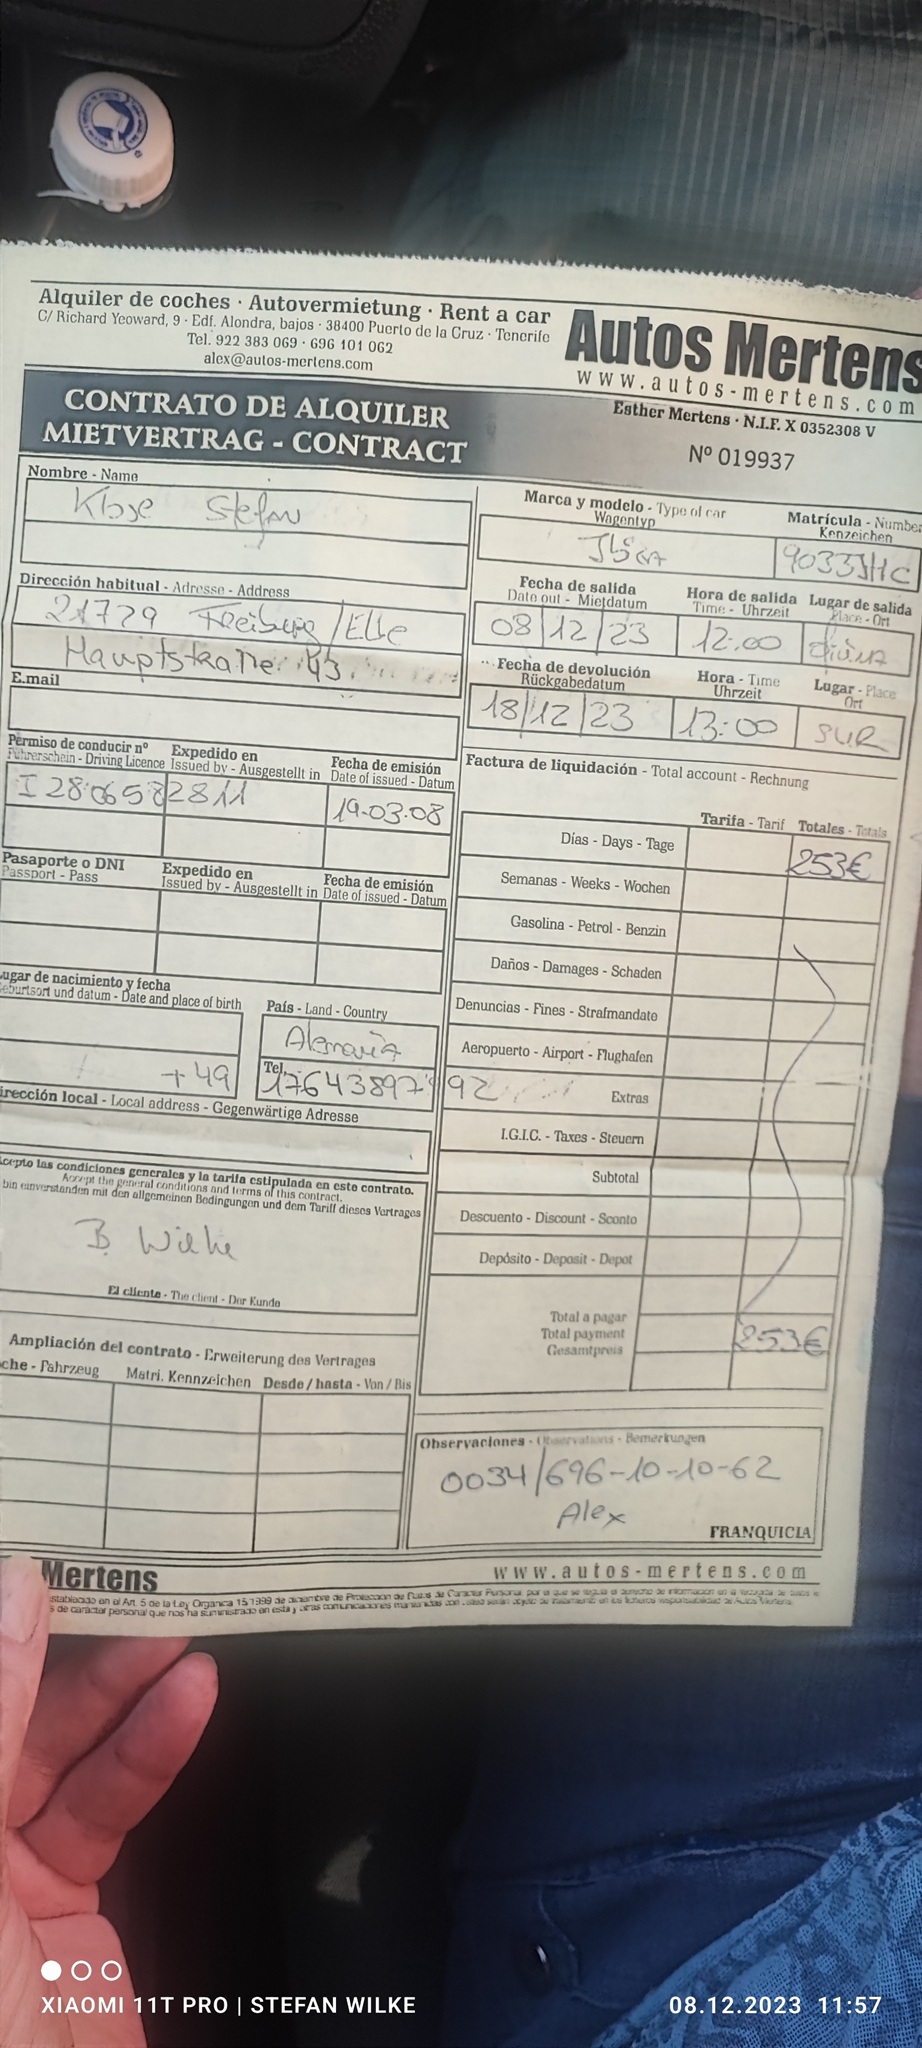 Alquiler de coches · Autovermietung · Rent a car
C/ Richard Yeoward, 9 · Edf. Alondra, bajos · 38400 Puerto de la Cruz · Tenerife
Tel. 922 383 069 · 696 101 062
alex@autos-mertens.com
Autos Mertens
www.autos-mertens.com
Esther Mertens · N.I.F. X 0352308 V
CONTRATO DE ALQUILER
MIETVERTRAG - CONTRACT
Nº 019937
Nombre - Name
Stefan
Marca y modelo - Type of car
Wagentyp
Matrícula - Number
Kenzeichen
Dirección habitual - Adresse - Address
21729 Freiburg/Elbe
Hauptstraße 43
Fecha de salida
Date out - Mietdatum
Hora de salida
Time - Uhrzeit
Lugar de salida
Place - Ort
08/12/23
12:00
Fecha de devolución
Rückgabedatum
Hora - Time
Uhrzeit
Lugar - Place
Ort
18/12/23
13:00
SUR
E.mail
Permiso de conducir nº
Führerschein - Driving Licence
Expedido en
Issued by - Ausgestellt in
Fecha de emisión
Date of issued - Datum
I2806582811
19.03.08
Pasaporte o DNI
Passport - Pass
Expedido en
Issued by - Ausgestellt in
Fecha de emisión
Date of issued - Datum
ugar de nacimiento y fecha
eburtsort und datum - Date and place of birth
País - Land - Country
Alemania
+49
Tel.
17643897992
irección local - Local address - Gegenwärtige Adresse
cepto las condiciones generales y la tarifa estipulada en este contrato.
Accept the general conditions and terms of this contract.
bin einverstanden mit den allgemeinen Bedingungen und dem Tariff dieses Vertrages
B. Wilke
El cliente - The client - Der Kunde
Factura de liquidación - Total account - Rechnung
Tarifa - Tarif
Totales - Totals
Días - Days - Tage
253€
Semanas - Weeks - Wochen
Gasolina - Petrol - Benzin
Daños - Damages - Schaden
Denuncias - Fines - Strafmandate
Aeropuerto - Airport - Flughafen
Extras
I.G.I.C. - Taxes - Steuern
Subtotal
Descuento - Discount - Sconto
Depósito - Deposit - Depot
Total a pagar
Total payment
Gesamtpreis
253€
Ampliación del contrato - Erweiterung des Vertrages
che - Fahrzeug
Matri. Kennzeichen
Desde / hasta - Von / Bis
Observaciones - Observations - Bemerkungen
0034/696-10-10-62
Alex
FRANQUICIA
Mertens
www.autos-mertens.com
XIAOMI 11T PRO | STEFAN WILKE
08.12.2023 11:57